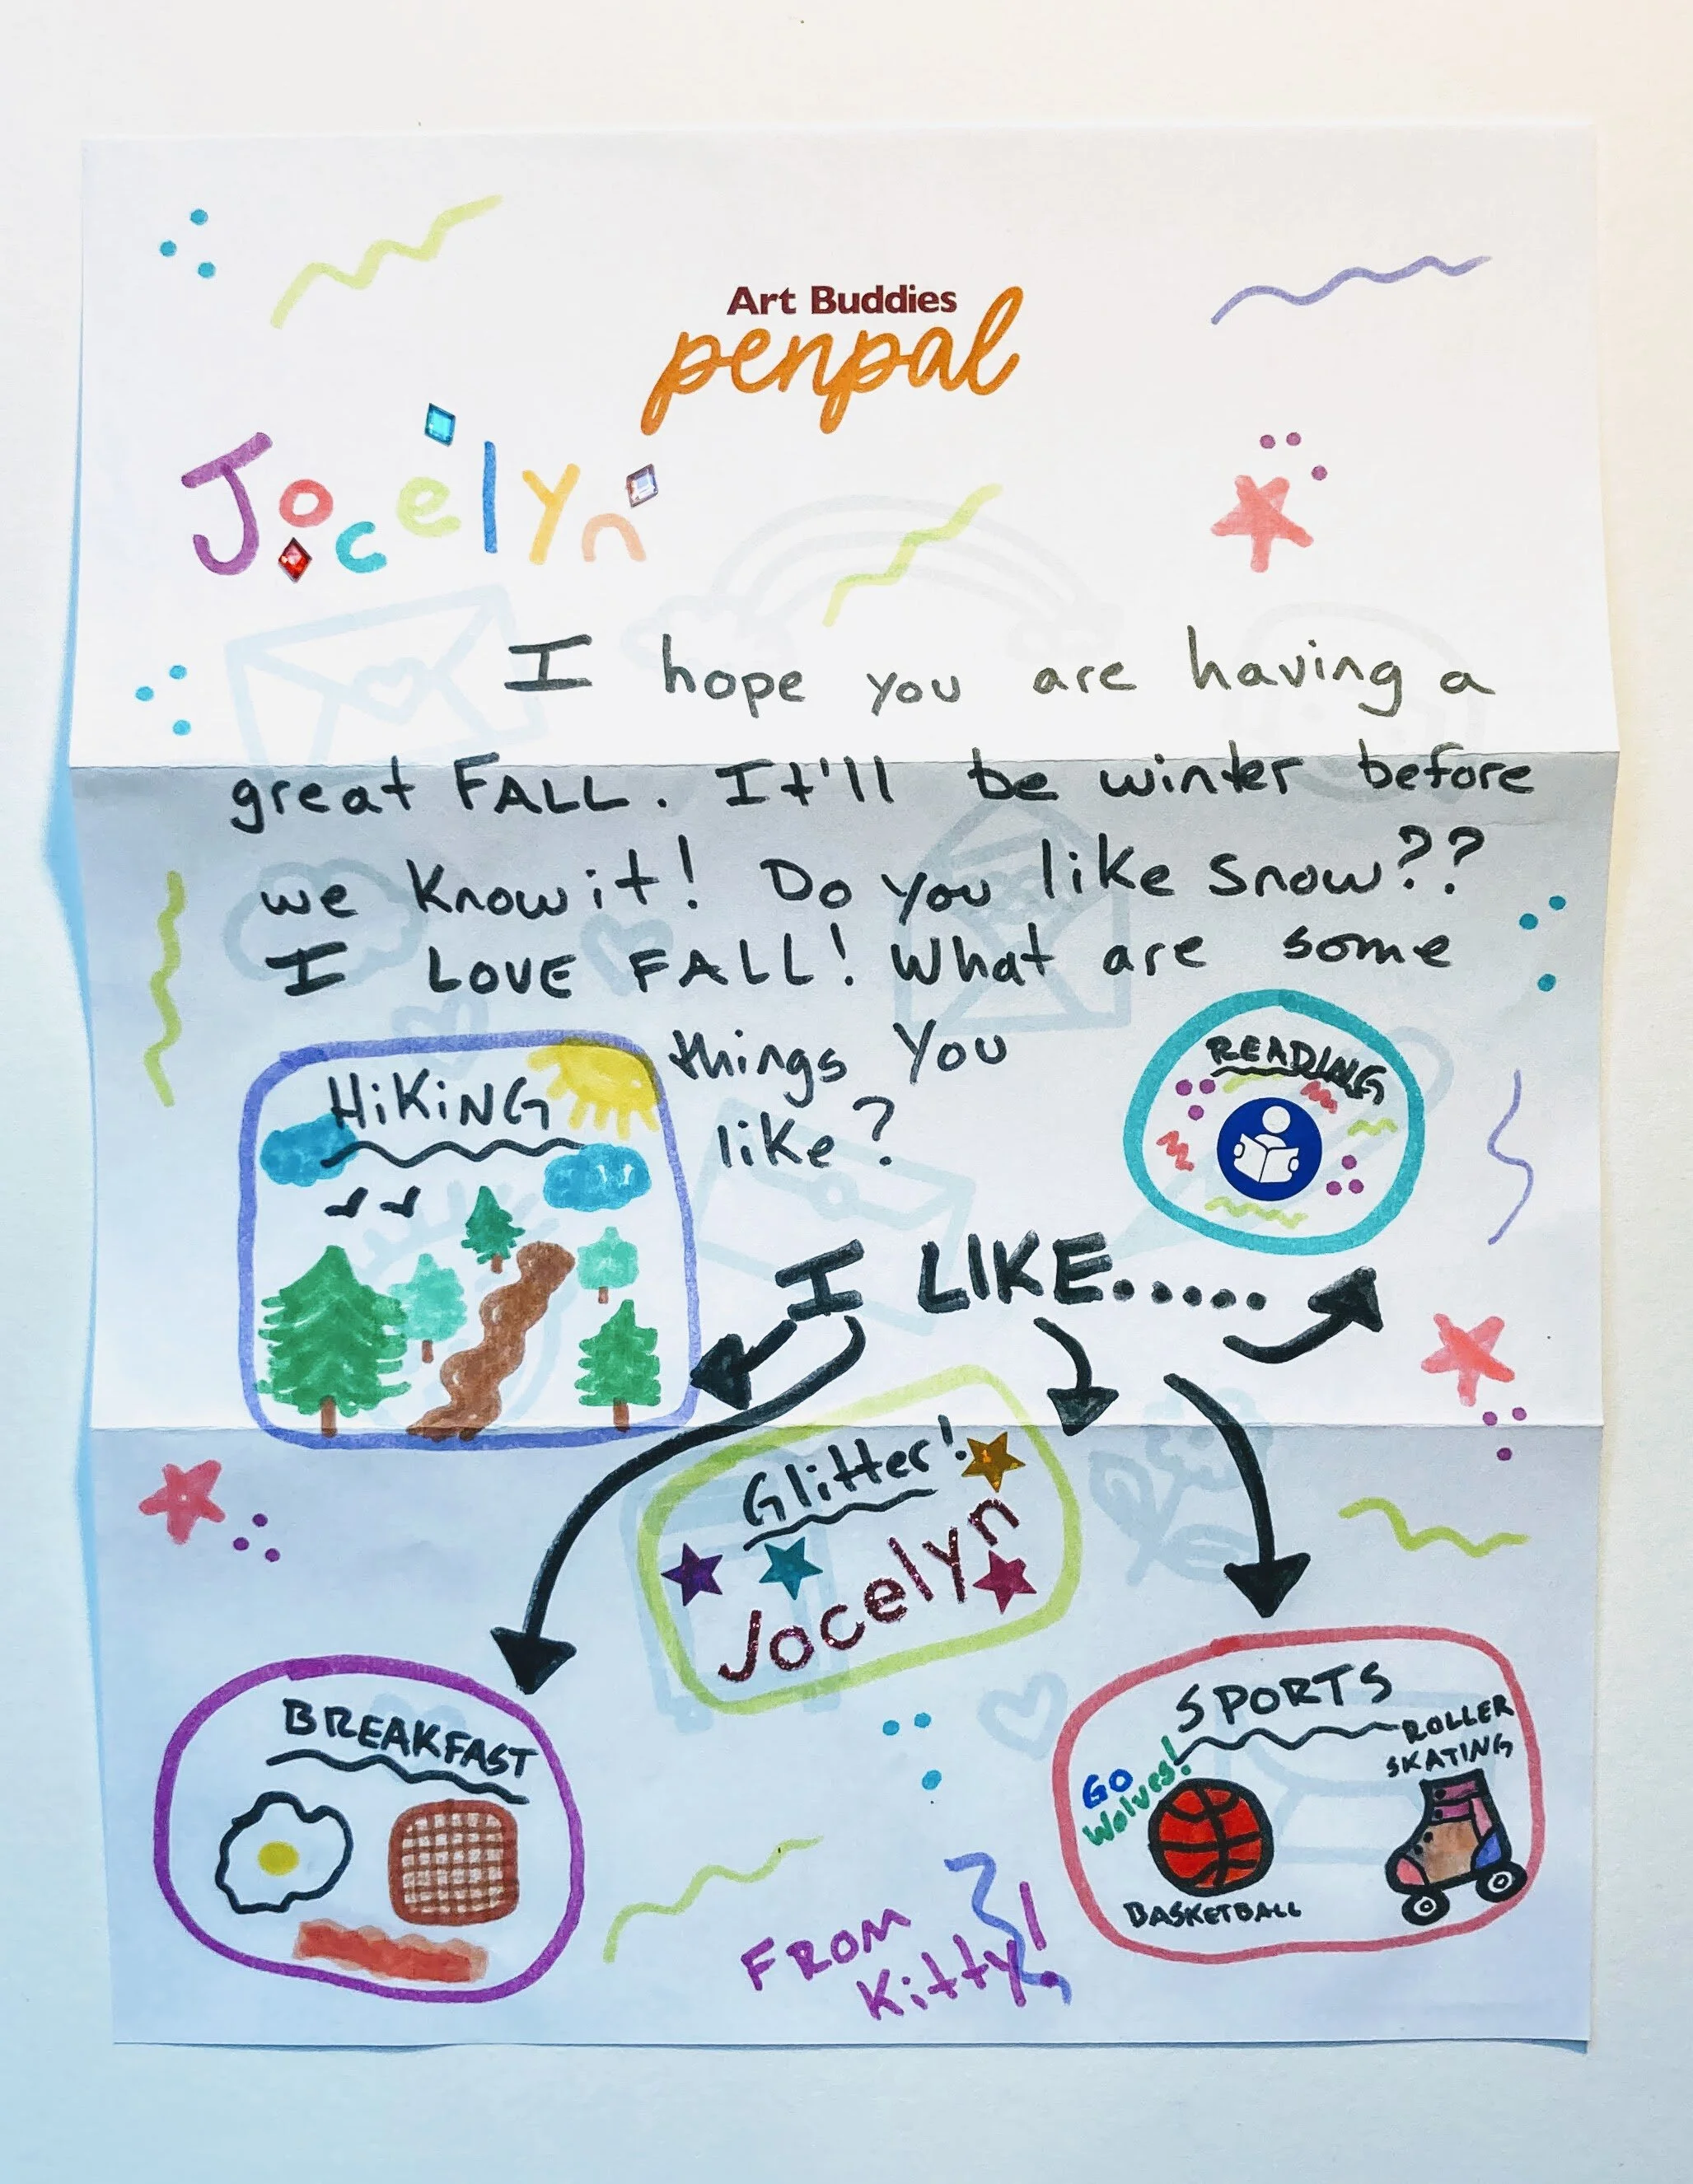 Art Buddies
penpal
Jocelyn
I hope you are having a
great FALL. It'll be winter before
we know it! Do you like snow??
I LOVE FALL! What are some
things you
like?
HiKiNG
READING
I LIKE.....
Glitter!
Jocelyn
BREAKFAST
SPORTS
ROLLER
SKATING
GO
Wolves!
BASKETBALL
FROM
Kitty!